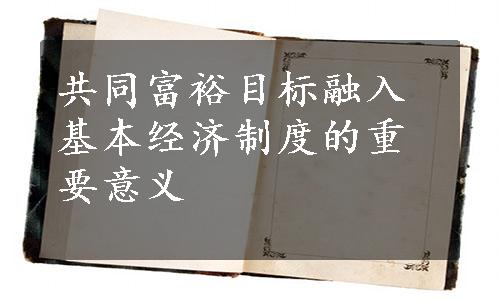 共同富裕目标融入
基本经济制度的重
要意义